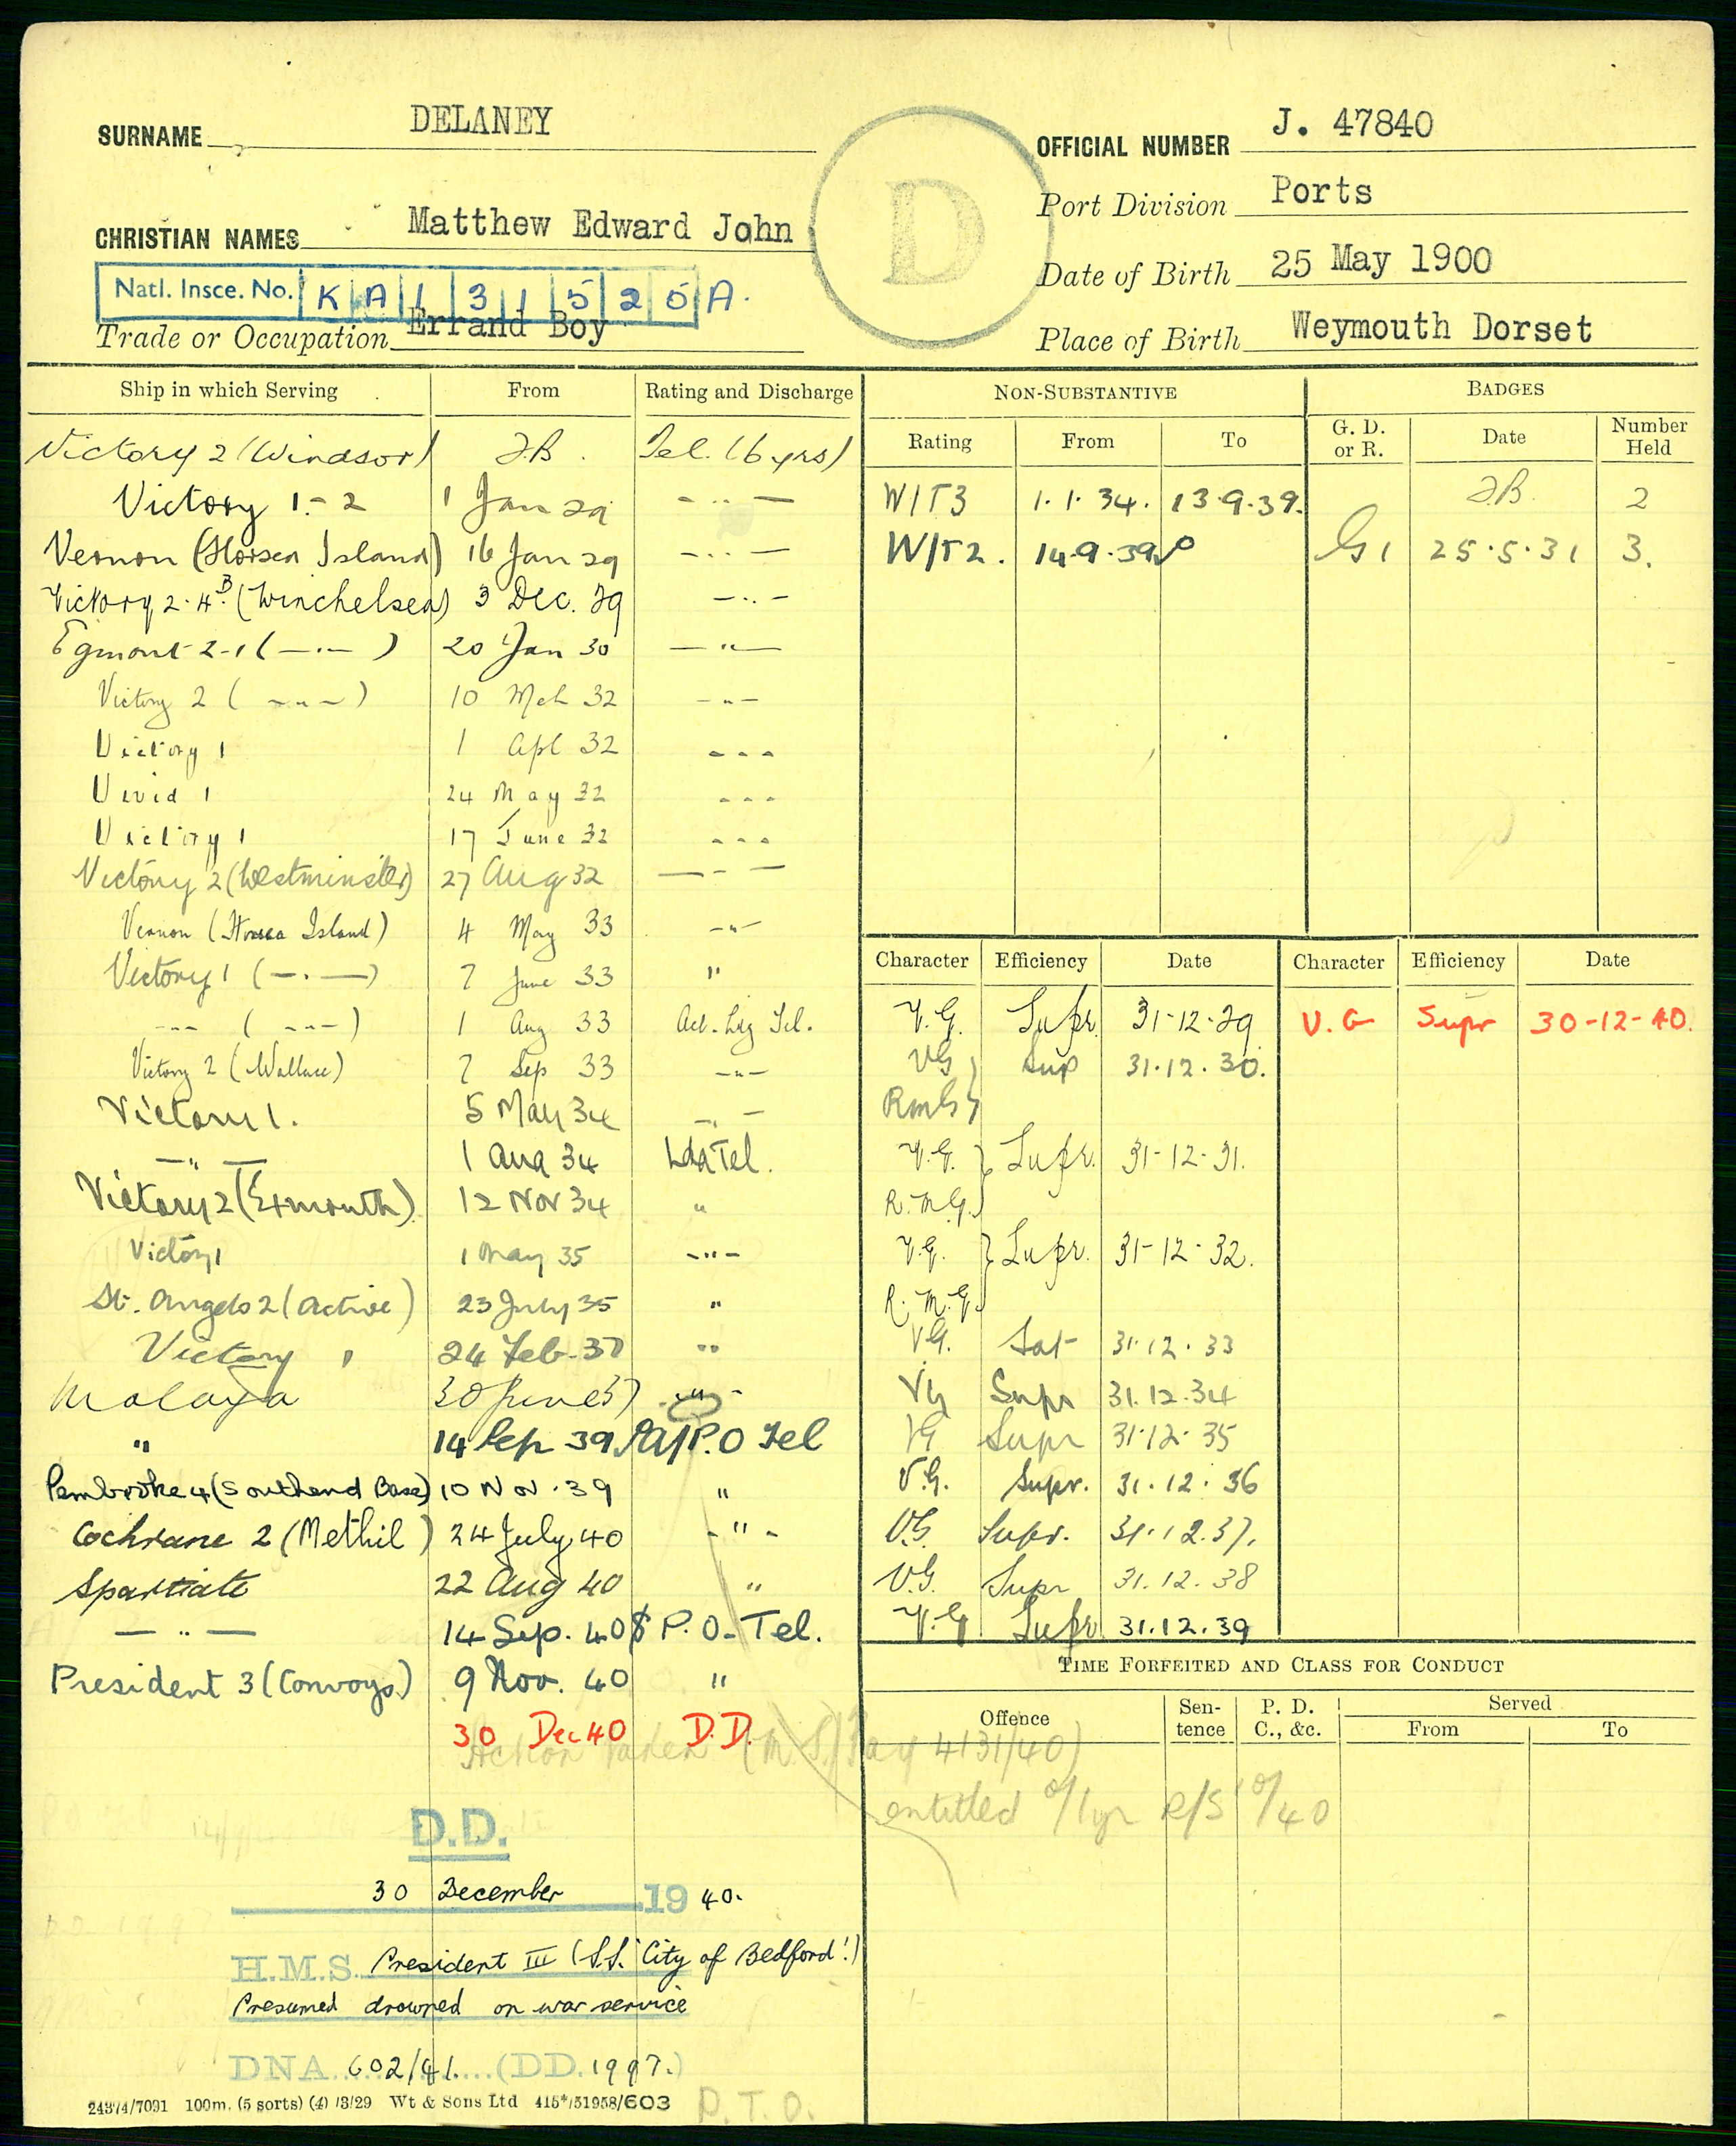 SURNAME DELANEY
OFFICIAL NUMBER J. 47840
CHRISTIAN NAMES Matthew Edward John
Port Division Ports
Date of Birth 25 May 1900
Natl. Insce. No. K A 1 3 1 5 2 5 A.
Trade or Occupation Errand Boy
Place of Birth Weymouth Dorset
D
Ship in which Serving From Rating and Discharge
Victory 2 (Windsor) J.B. Tel. (6 yrs)
Victory 1-2 1 Jan 29 - " -
Vernon (Horsea Island) 16 Jan 29 - " -
Victory 2. 4B. (Winchelsea) 3 Dec. 29 - " -
Egmont 2-1 ( - " - ) 20 Jan 30 - " -
Victory 2 ( - " - ) 10 Mch 32 - " -
Victory 1 1 Apl 32 - " -
Vivid 1 24 May 32 - " -
Victory 1 17 June 32 - " -
Victory 2 (Westminster) 27 Aug 32 - " -
Vernon (Horsea Island) 4 May 33 - " -
Victory 1 ( - " - ) 7 June 33 "
- " - ( - " - ) 1 Aug 33 Act. Ldg Tel.
Victory 2 (Wallace) 7 Sep 33 - " -
Victory 1. 5 May 34 - " -
- " - 1 Aug 34 Ldg Tel.
Victory 2 (Exmouth) 12 Nov 34 "
Victory 1 1 May 35 - " -
St. Angelo 2 (Active) 23 July 35 "
Victory 1 24 Feb. 37 "
Malaya 30 June 37 - " -
" 14 Sep 39 A/P.O Tel
Pembroke 4 (Southend Base) 10 Nov. 39 "
Cochrane 2 (Methil) 24 July 40 - " -
Spartiate 22 Aug 40 "
- " - 14 Sep. 40 P.O. Tel.
President 3 (Convoys) 9 Nov. 40 "
30 Dec 40 D.D.
Action taken (N.S./Pay 4131/40)
D.D.
30 December 1940.
H.M.S. President III (S.S. 'City of Bedford'.)
Presumed drowned on war service
DNA 602/41. (DD. 1997.)
24374/7091 100m. (5 sorts) (4) /3/29 Wt & Sons Ltd 415*/51958/603
P.T.O.
NON-SUBSTANTIVE BADGES
Rating From To G. D. or R. Date Number Held
J.B. 2
W/T3 1.1.34. 13.9.39.
W/T2. 14.9.39 G1 25.5.31 3.
Character Efficiency Date Character Efficiency Date
V.G. Supr. 31-12-29 V.G Supr 30-12-40.
VG } Sup 31.12.30.
RmG }
V.G. } Supr. 31-12-31.
R.M.G. }
V.G. } Supr. 31-12-32.
R.M.G. }
VG. Sat 31.12.33
VG Supr 31.12.34
VG Supr 31.12.35
V.G. Supr. 31.12.36
V.G. Supr. 31.12.37.
V.G. Supr 31.12.38
V.G Supr 31.12.39
TIME FORFEITED AND CLASS FOR CONDUCT
Offence Sentence P. D. C., &c. Served
From To
entitled 1 yr R/S 40